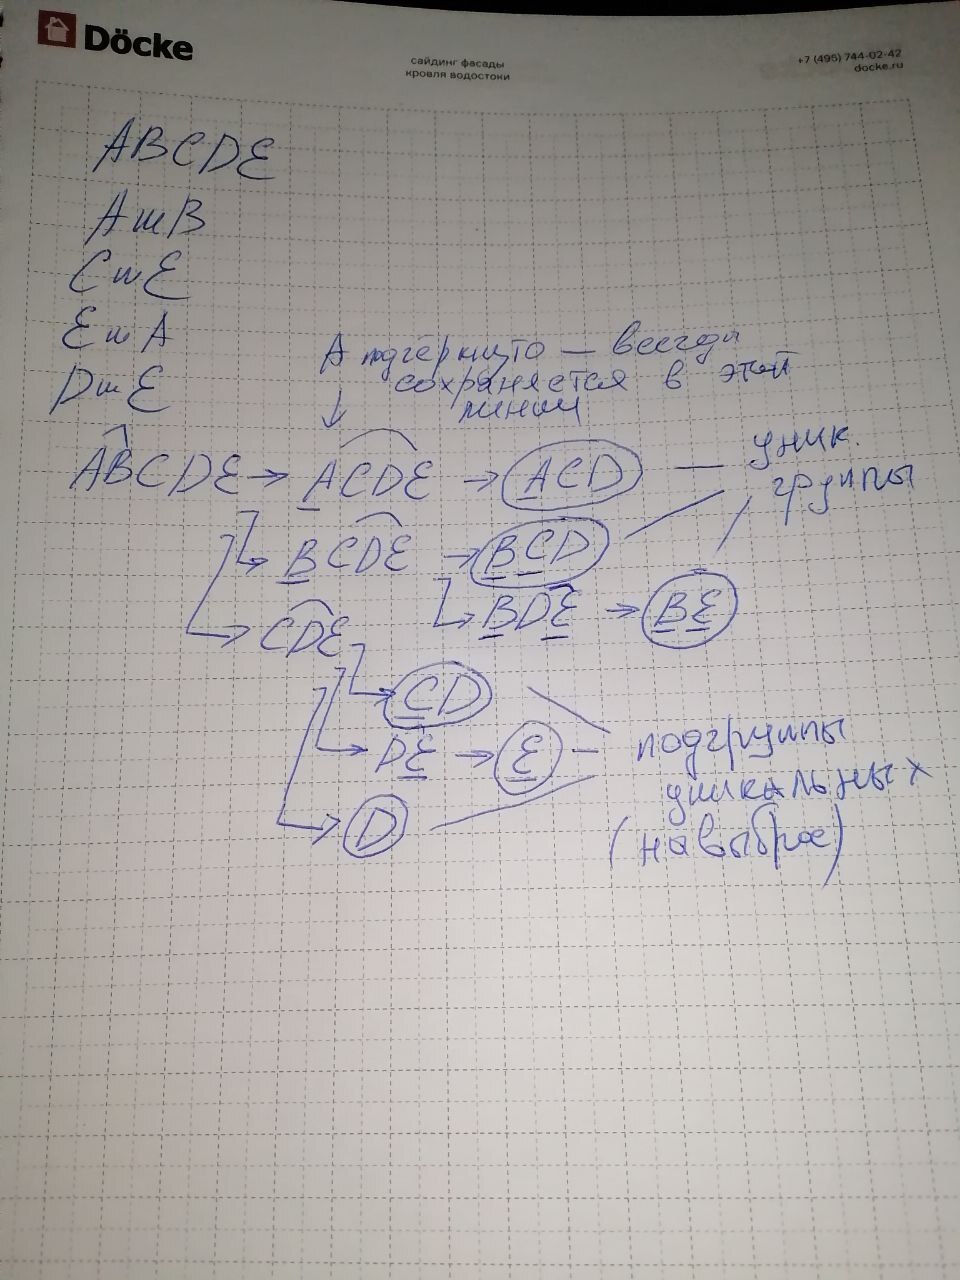 Döcke
сайдинг фасады
кровля водостоки
+7 (495) 744-02-42
docke.ru
ABCDE
A ш B
C ш E
E ш A
D ш E
A подчеркнуто — всегда
сохраняется в этой
линии
ABCDE → ACDE → ACD — уник.
группы
BCDE → BCD
CDE BDE → BE
CD
DE → E — подгруппы
уникальных
D (на выброс)